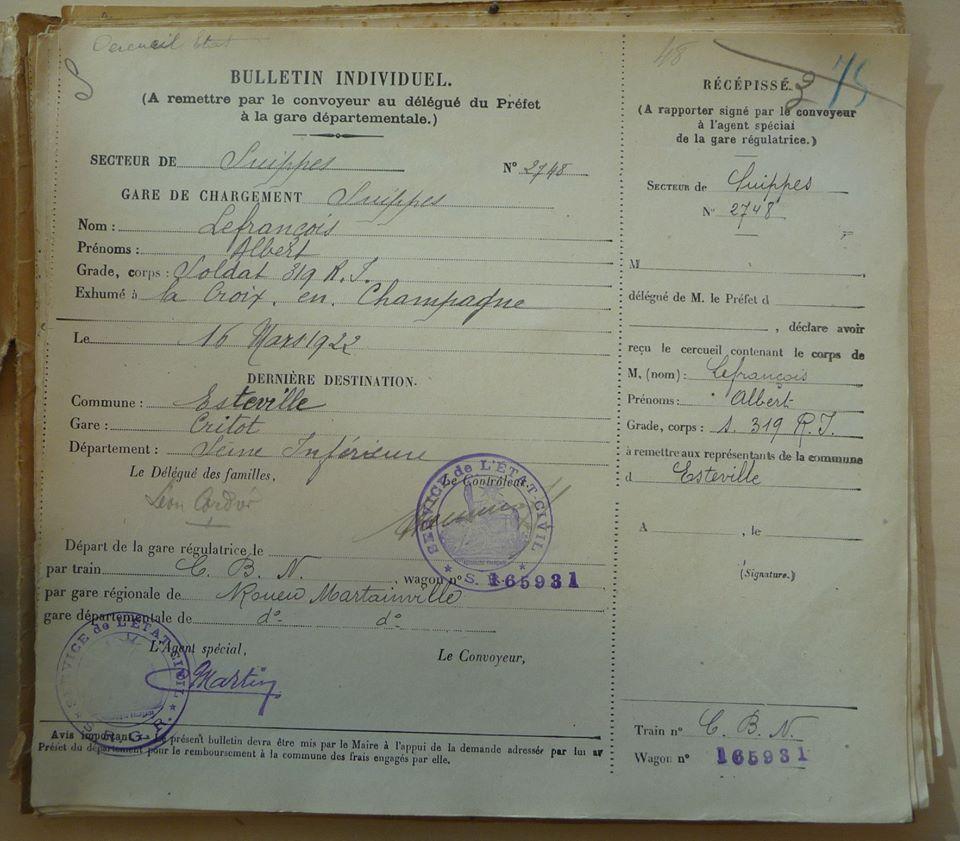 Cercueil Etat
BULLETIN INDIVIDUEL.
(A remettre par le convoyeur au délégué du Préfet
à la gare départementale.)
SECTEUR DE Suippes N° 2748
GARE DE CHARGEMENT Suippes
Nom : Lefrançois
Prénoms : Albert
Grade, corps : Soldat 319 R.I.
Exhumé à la Croix. en. Champagne
Le 16 Mars 1922
DERNIÈRE DESTINATION.
Commune : Esteville
Gare : Critot
Département : Seine Inférieure
Le Délégué des familles,
Le Contrôleur,
Léon
SERVICE de L'ÉTAT-CIVIL
Départ de la gare régulatrice le
par train C. B. N. , wagon n° 165931
par gare régionale de Rouen Martainville
gare départementale de d° d°
L'Agent spécial,
Le Convoyeur,
Martin
SERVICE de L'ÉTAT-CIVIL
Avis important. — Le présent bulletin devra être mis par le Maire à l'appui de la demande adressée par lui au
Préfet du département pour le remboursement à la commune des frais engagés par elle.
48
75
RÉCÉPISSÉ.
(A rapporter signé par le convoyeur
à l'agent spécial
de la gare régulatrice.)
SECTEUR de Suippes
N° 2748
M
délégué de M. le Préfet d
, déclare avoir
reçu le cercueil contenant le corps de
M, (nom) : Lefrançois
Prénoms : Albert
Grade, corps : s. 319 R.I.
à remettre aux représentants de la commune
d Esteville
A , le
(Signature.)
Train n° C. B. N.
Wagon n° 165931